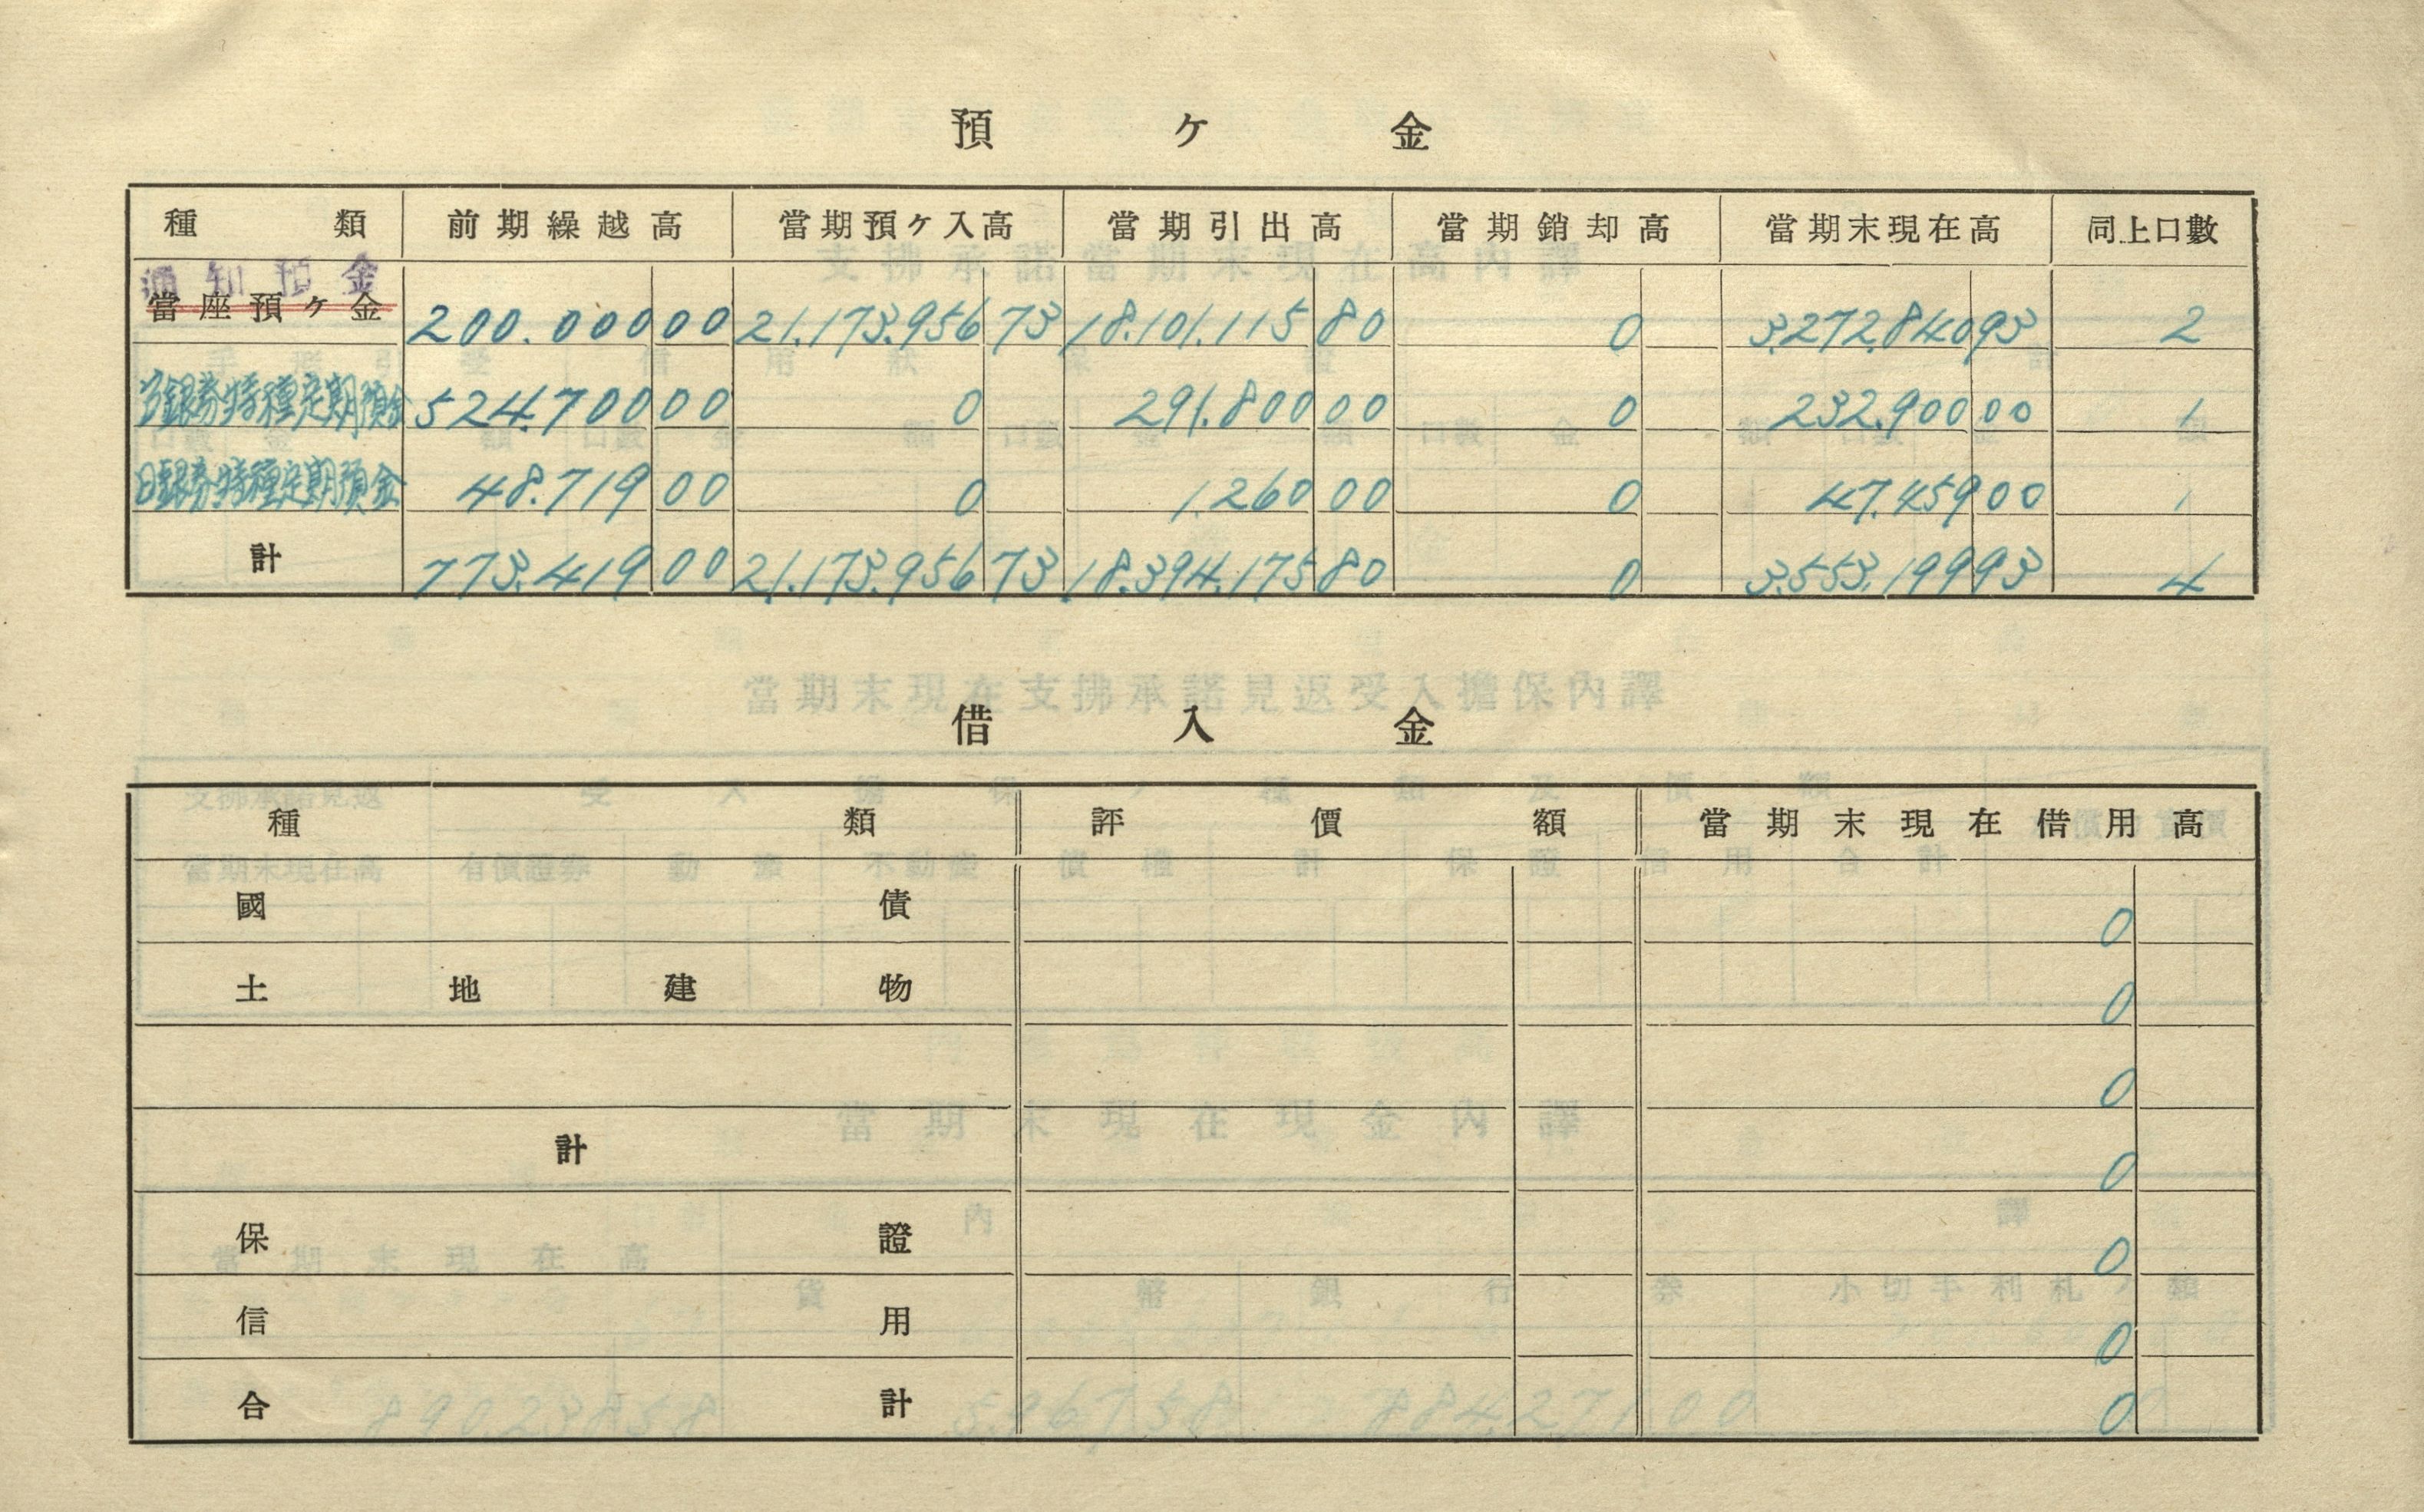 預ケ金
種類 前期繰越高 當期預ケ入高 當期引出高 當期銷却高 當期末現在高 同上口數
通知預金
當座預ケ金 200.000 00 21.173.956 73 18.101.115 80 0 3.272.840 93 2
台銀券特種定期預金 524.700 00 0 291.800 00 0 232.900 00 1
日銀券特種定期預金 48.719 00 0 1.260 00 0 47.459 00 1
計 773.419 00 21.173.956 73 18.394.175 80 0 3.553.199 93 4
借入金
種類 評價額 當期末現在借用高
國債 0
土地建物 0
0
計 0
保證 0
信用 0
合計 0